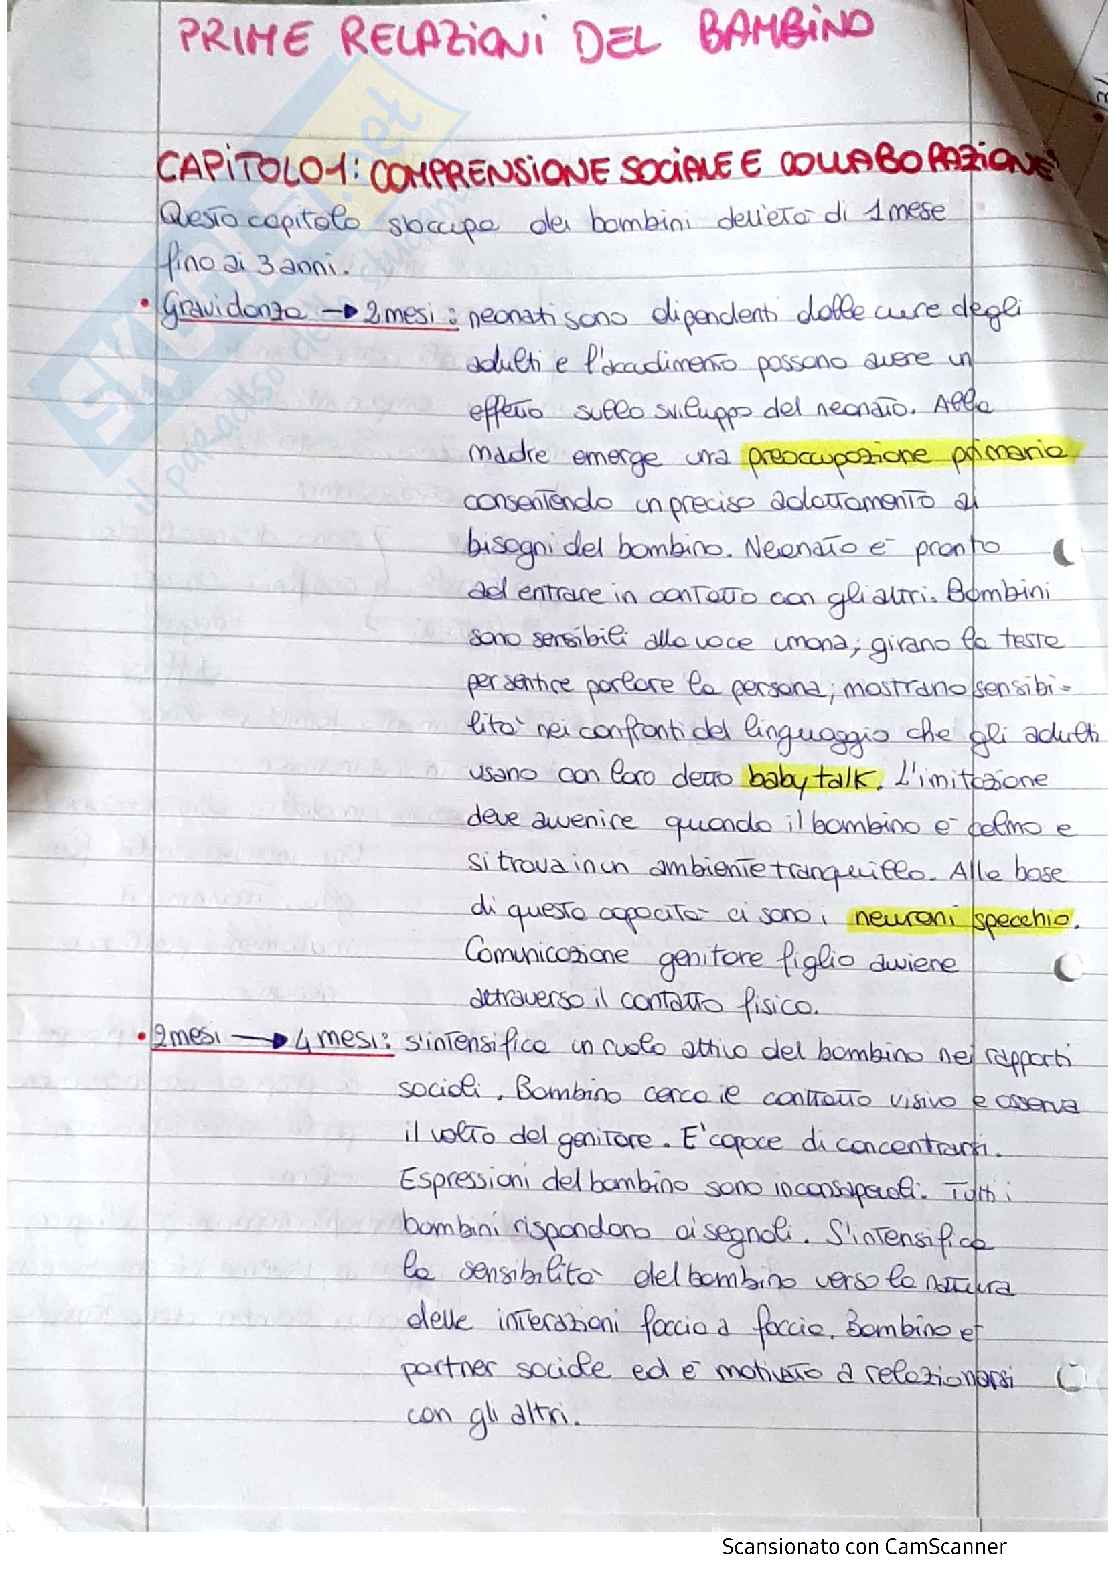 PRIME RELAZIONI DEL BAMBINO
CAPITOLO 1: COMPRENSIONE SOCIALE E COLLABORAZIONE
Questo capitolo s'occupa dei bambini dell'età di 1 mese
fino ai 3 anni.
• Gravidanza → 2 mesi: neonati sono dipendenti dalle cure degli
adulti e l'accudimento possono avere un
effetto sullo sviluppo del neonato. Alla
madre emerge una preoccupazione primaria
consentendo un preciso adattamento ai
bisogni del bambino. Neonato è pronto
ad entrare in contatto con gli altri. Bambini
sono sensibili alla voce umana; girano la testa
per sentire parlare la persona; mostrano sensibi-
lità nei confronti del linguaggio che gli adulti
usano con loro detto baby talk. L'imitazione
deve avvenire quando il bambino è calmo e
si trova in un ambiente tranquillo. Alla base
di questa capacità ci sono i neuroni specchio.
Comunicazione genitore figlio avviene
attraverso il contatto fisico.
• 2 mesi → 4 mesi: s'intensifica un ruolo attivo del bambino nei rapporti
sociali. Bambino cerca il contatto visivo e osserva
il volto del genitore. E' capace di concentrarsi.
Espressioni del bambino sono inconsapevoli. Tutti i
bambini rispondono ai segnali. S'intensifica
la sensibilità del bambino verso la natura
delle interazioni faccia a faccia. Bambino è
partner sociale ed è motivato a relazionarsi
con gli altri.
SKUOLA.net
il paradiso dello studente
Scansionato con CamScanner